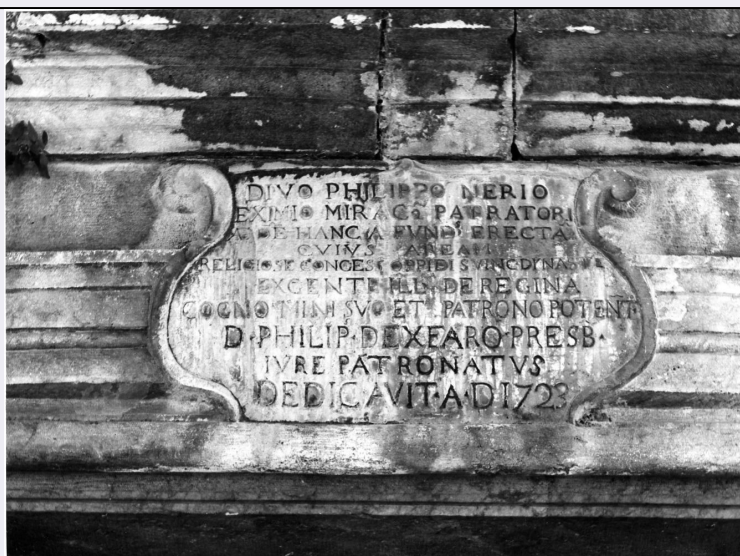 DIVO PHILIPPO NERIO
EXIMIO MIRACŌ PATRATORI
HANC A FUND ERECTA
CVIVS AREA
RELIGIOSE CONCES
EXCENT ILL DE REGINA
COGNOTIINI SVO ET PATRONO POTENT
D·PHILIP·DEXFARO·PRESB·
IVRE PATRONATVS
DEDICAVIT·A·D·1723